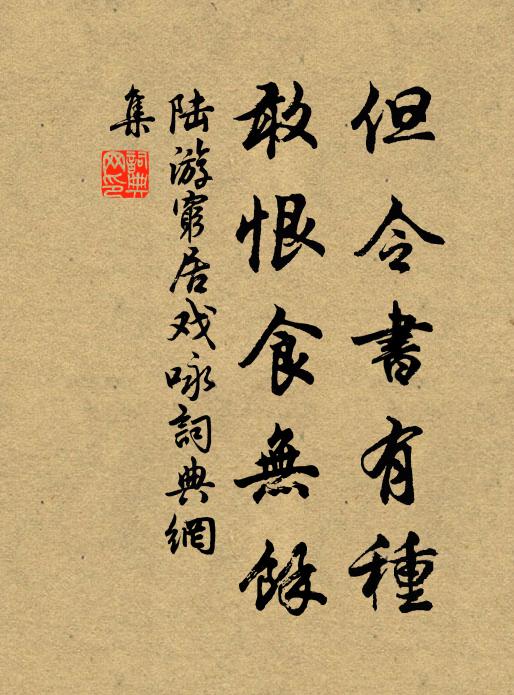 但令書有種
敢恨食無餘
陆游窮居戏咏詞典網
集
詞典
网印